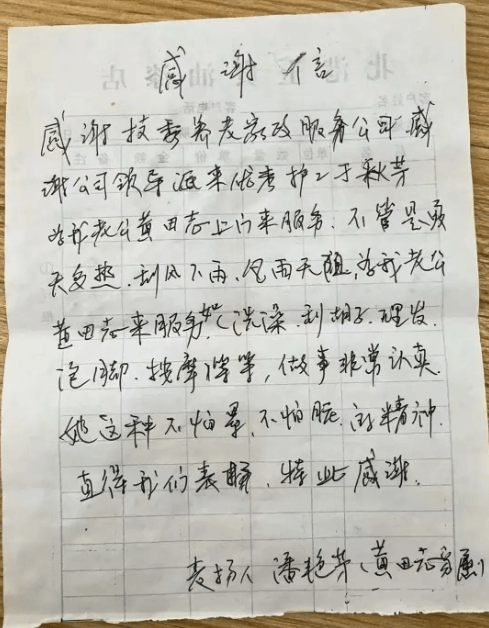 感谢信
感谢技委养老家政服务公司 感
谢公司领导派来的李护工于秋芳
为我老公黄田志上门来服务. 不管是夏
天多热. 刮风下雨. 风雨无阻, 为我老公
黄田志来服务如(洗澡. 刮胡子. 理发.
泡脚. 按摩)等等, 做事非常认真.
她这种不怕累、不怕脏. 的精神.
直得我们表扬, 特此感谢.
表扬人 潘艳芳 (黄田志家属)